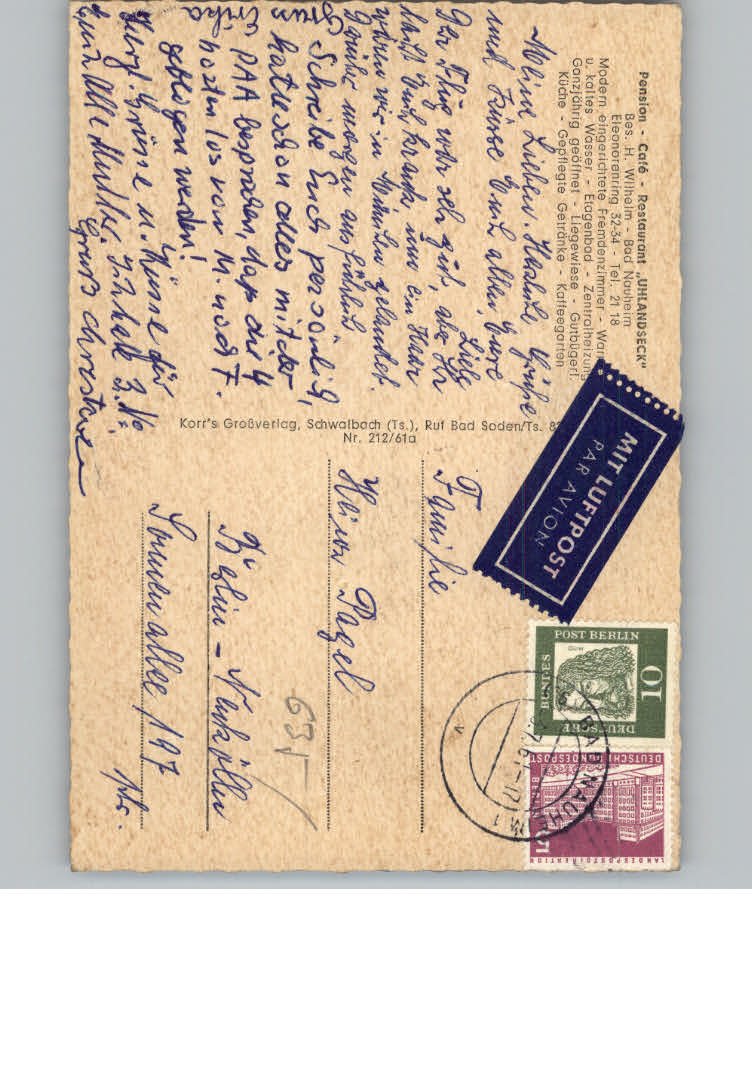 Pension - Café - Restaurant „UHLANDSECK"
Bes. H. Wilhelm - Bad Nauheim
Eleonorenring 32-34 - Tel. 21 18
Modern eingerichtete Fremdenzimmer - War
u. kaltes Wasser - Etagenbad - Zentralheizung
Ganzjährig geöffnet - Liegewiese - Gutbürgerl.
Küche - Gepflegte Getränke - Kaffeegarten
Meine Lieben. Herzliche Grüße
und Küsse Euch allen, Eure
Liesl
Der Flug war sehr gut, aber Ihr
laßt Euch krank um ein Uhr
waren wir in gelandet.
Gerüber morgen ausführlich
Schreibe Euch persönlich,
hatte schon alles mit der
PAA besprochen, daß die 4
kosten los von M. nach F.
geflogen werden!
Gruß
Erika
Herzl. Grüße u. Küsse für
Euch Alle Mutter,
Gruß Christine
Korr's Großverlag, Schwalbach (Ts.), Ruf Bad Soden/Ts. 8
Nr. 212/61a
MIT LUFTPOST
PAR AVION
DEUTSCHE BUNDESPOST BERLIN
10
Dürer
DEUTSCHE BUNDESPOST
BERLIN
LANDESPOSTDIREKTION
BAD NAUHEIM 1
Familie
Heinz Pagel
Berlin - Neukölln
Sonnenallee 197
ptr.